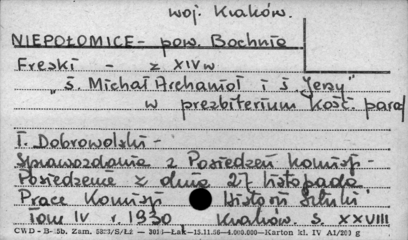 woj. Kraków.
NIEPOŁOMICE - pow. Bochnia
Freski - z XIV w
"Ś. Michał Archanioł i Ś Jerzy"
w prezbiterium Kośc. paraf
T. Dobrowolski -
Sprawozdania z Posiedzeń Komisji -
Posiedzenie z dnia 27 listopada
Prace Komisji Historii Sztuki
Tom IV r. 1930 Kraków. s. XXVIII
CWD - B- 5b. Zam. S/Łż - Łak - 15.11.56 - 4.000.000 - Karton kl. IV A1/200 g